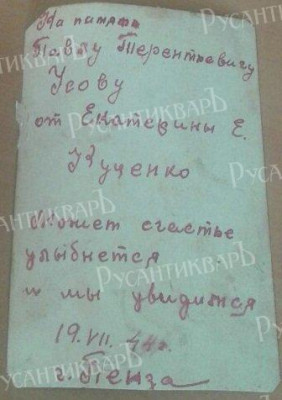 На память
Павлу Терентьевичу
Усову
от Екатерины Е.
Куценко
Может счастье
улыбнется
и мы увидимся
19.VII.44г.
г. Пенза
РусантикварЪ
РусантикварЪ
РусантикварЪ
РусантикварЪ
РусантикварЪ